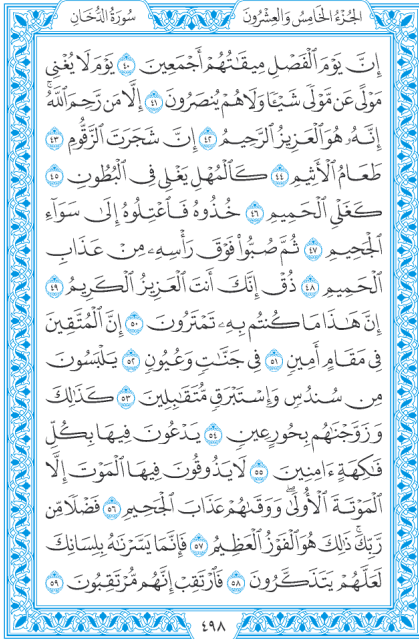 الجُزْءُ الخَامِسُ وَالعِشْرُونَ سُورَةُ الدُّخَانِ
إِنَّ يَوْمَ ٱلْفَصْلِ مِيقَٰتُهُمْ أَجْمَعِينَ ٤٠ يَوْمَ لَا يُغْنِى
مَوْلًى عَن مَّوْلًى شَيْـًٔا وَلَا هُمْ يُنصَرُونَ ٤١ إِلَّا مَن رَّحِمَ ٱللَّهُۚ
إِنَّهُۥ هُوَ ٱلْعَزِيزُ ٱلرَّحِيمُ ٤٢ إِنَّ شَجَرَتَ ٱلزَّقُّومِ ٤٣
طَعَامُ ٱلْأَثِيمِ ٤٤ كَٱلْمُهْلِ يَغْلِى فِى ٱلْبُطُونِ ٤٥
كَغَلْىِ ٱلْحَمِيمِ ٤٦ خُذُوهُ فَٱعْتِلُوهُ إِلَىٰ سَوَآءِ
ٱلْجَحِيمِ ٤٧ ثُمَّ صُبُّوا۟ فَوْقَ رَأْسِهِۦ مِنْ عَذَابِ
ٱلْحَمِيمِ ٤٨ ذُقْ إِنَّكَ أَنتَ ٱلْعَزِيزُ ٱلْكَرِيمُ ٤٩
إِنَّ هَٰذَا مَا كُنتُم بِهِۦ تَمْتَرُونَ ٥٠ إِنَّ ٱلْمُتَّقِينَ
فِى مَقَامٍ أَمِينٍ ٥١ فِى جَنَّٰتٍ وَعُيُونٍ ٥٢ يَلْبَسُونَ
مِن سُندُسٍ وَإِسْتَبْرَقٍ مُّتَقَٰبِلِينَ ٥٣ كَذَٰلِكَ
وَزَوَّجْنَٰهُم بِحُورٍ عِينٍ ٥٤ يَدْعُونَ فِيهَا بِكُلِّ
فَٰكِهَةٍ ءَامِنِينَ ٥٥ لَا يَذُوقُونَ فِيهَا ٱلْمَوْتَ إِلَّا
ٱلْمَوْتَةَ ٱلْأُولَىٰۖ وَوَقَىٰهُمْ عَذَابَ ٱلْجَحِيمِ ٥٦ فَضْلًا مِّن
رَّبِّكَۚ ذَٰلِكَ هُوَ ٱلْفَوْزُ ٱلْعَظِيمُ ٥٧ فَإِنَّمَا يَسَّرْنَٰهُ بِلِسَانِكَ
لَعَلَّهُمْ يَتَذَكَّرُونَ ٥٨ فَٱرْتَقِبْ إِنَّهُم مُّرْتَقِبُونَ ٥٩
٤٩٨